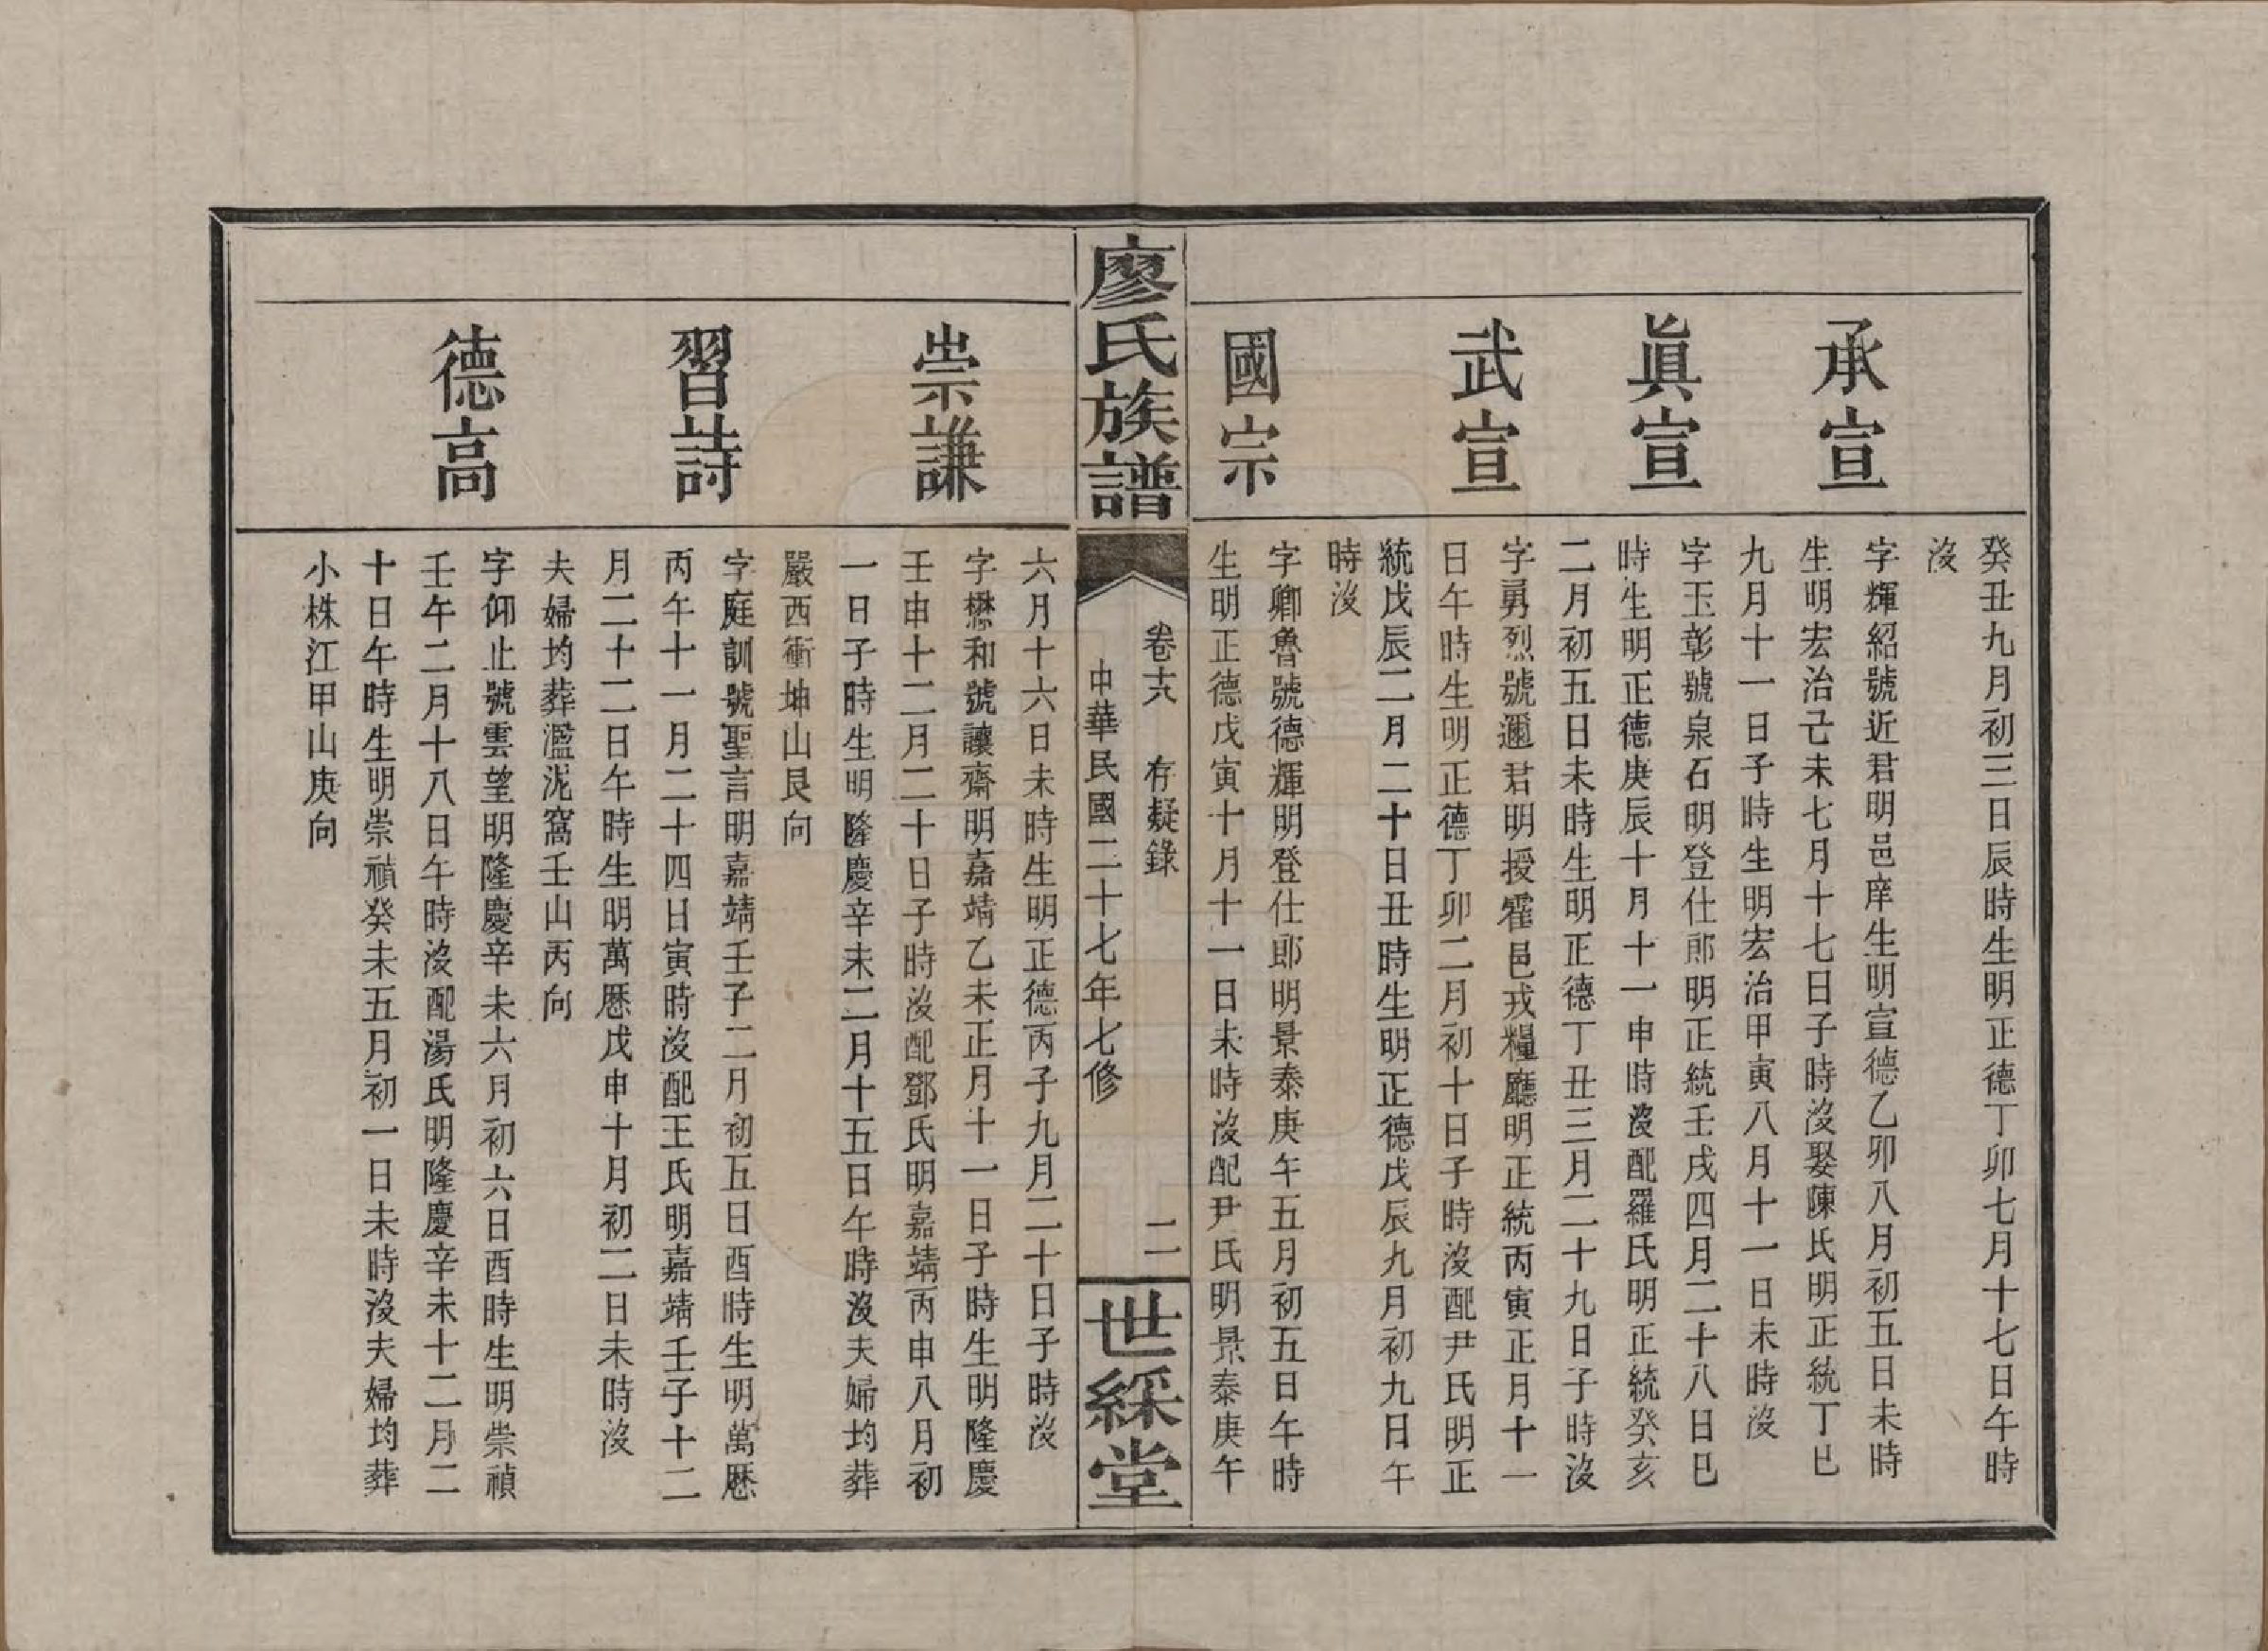 癸丑九月初三日辰時生明正德丁卯七月十七日午時
沒
承宣
字輝紹號近君明邑庠生明宣德乙卯八月初五日未時
生明宏治己未七月十七日子時沒娶陳氏明正統丁巳
九月十一日子時生明宏治甲寅八月十一日未時沒
眞宣
字玉彰號泉石明登仕郎明正統壬戌四月二十八日巳
時生明正德庚辰十月十一申時沒配羅氏明正統癸亥
二月初五日未時生明正德丁丑三月二十九日子時沒
武宣
字勇烈號邇君明授霍邑戎糧廳明正統丙寅正月十一
日午時生明正德丁卯二月初十日子時沒配尹氏明正
統戊辰二月二十日丑時生明正德戊辰九月初九日午
時沒
國宗
字卿魯號德輝明登仕郎明景泰庚午五月初五日午時
生明正德戊寅十月十一日未時沒配尹氏明景泰庚午
廖氏族譜
卷十六 存疑錄 二
中華民國二十七年七修
世綵堂
六月十六日未時生明正德丙子九月二十日子時沒
崇謙
字懋和號讓齋明嘉靖乙未正月十一日子時生明隆慶
壬申十二月二十日子時沒配鄧氏明嘉靖丙申八月初
一日子時生明隆慶辛未二月十五日午時沒夫婦均葬
嚴西衝坤山艮向
習詩
字庭訓號聖言明嘉靖壬子二月初五日酉時生明萬厯
丙午十一月二十四日寅時沒配王氏明嘉靖壬子十二
月二十二日午時生明萬厯戊申十月初二日未時沒
夫婦均葬濫泥窩壬山丙向
德高
字仰止號雲望明隆慶辛未六月初六日酉時生明崇禎
壬午二月十八日午時沒配湯氏明隆慶辛未十二月二
十日午時生明崇禎癸未五月初一日未時沒夫婦均葬
小株江甲山庚向